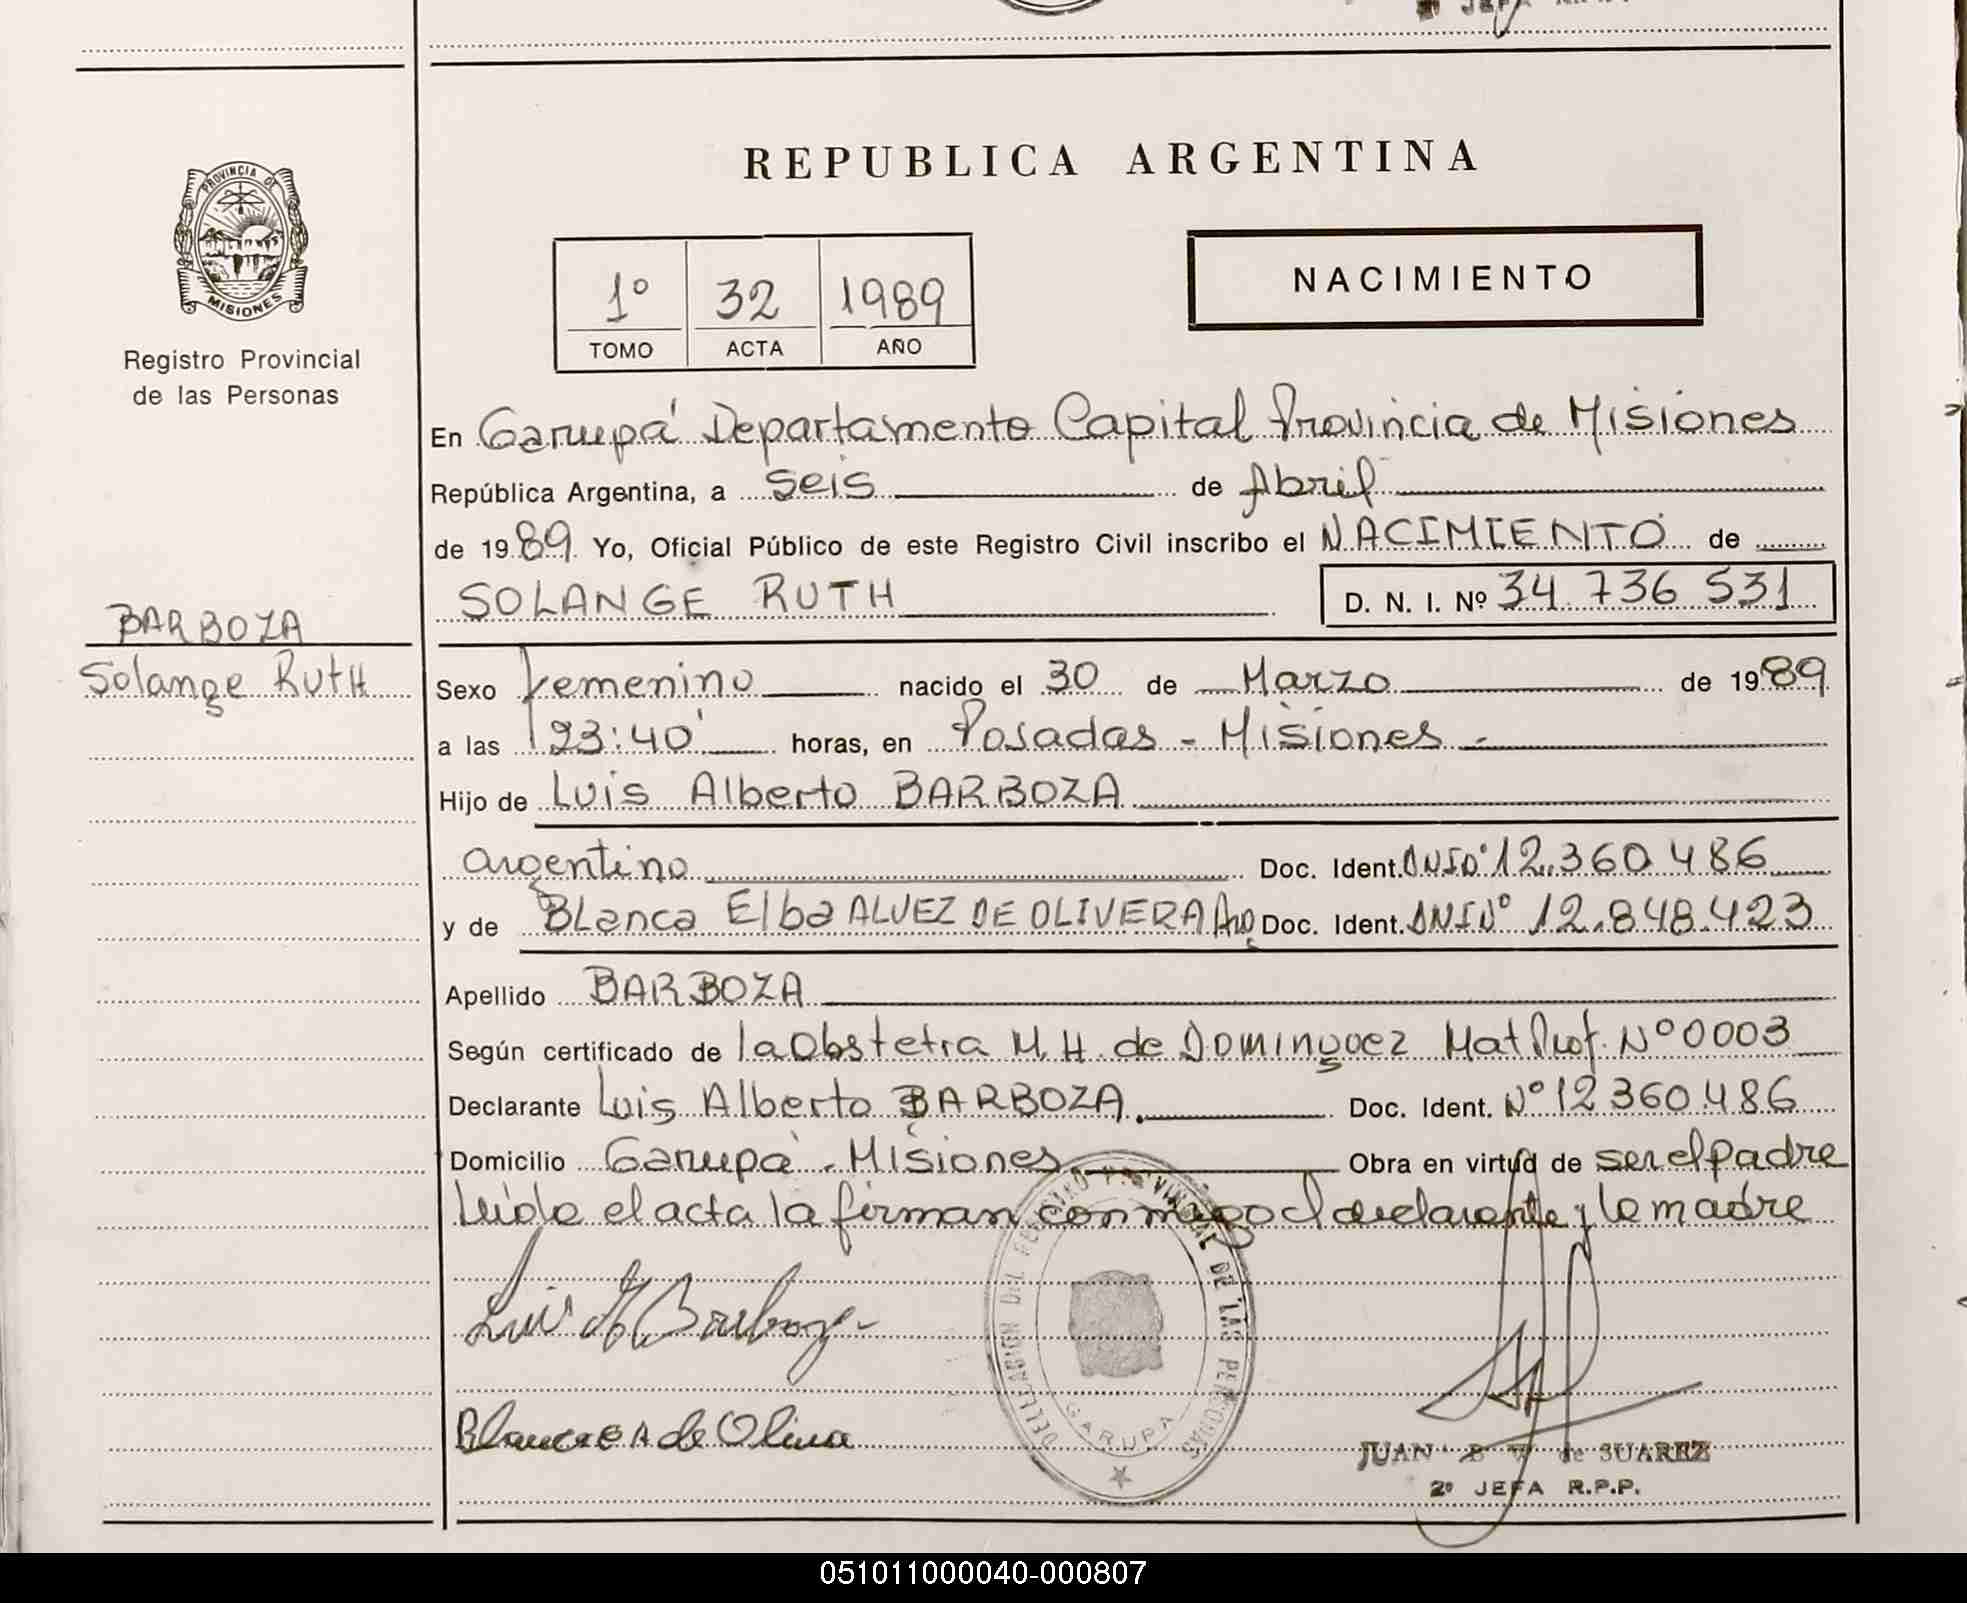 2º JEFA R.P.P.
REPUBLICA ARGENTINA
PROVINCIA DE
MISIONES
Registro Provincial
de las Personas
1º 32 1989
TOMO ACTA AÑO
NACIMIENTO
En Garupá Departamento Capital Provincia de Misiones
República Argentina, a seis de Abril
de 1989 Yo, Oficial Público de este Registro Civil inscribo el NACIMIENTO de
SOLANGE RUTH D. N. I. Nº 34 736 531
BARBOZA
Solange Ruth
Sexo Femenino nacido el 30 de Marzo de 1989
a las 23:40' horas, en Posadas - Misiones -
Hijo de Luis Alberto BARBOZA
argentino Doc. Ident. DNIº 12.360.486
y de Blanca Elba ALVEZ DE OLIVERA Arg Doc. Ident. DNIº 12.848.423
Apellido BARBOZA
Según certificado de la Obstetra M. H. de Dominguez Mat Prof. Nº 0003
Declarante Luis Alberto BARBOZA. Doc. Ident. Nº 12 360.486
Domicilio Garupá - Misiones. Obra en virtud de ser el padre
Leída el acta la firman conmigo el declarante y la madre
Luis A Barboza
Blanca E A de Olivera
DELEGACION DEL REGISTRO PROVINCIAL DE LAS PERSONAS
GARUPA
JUANA B V de SUAREZ
2º JEFA R.P.P.
051011000040-000807